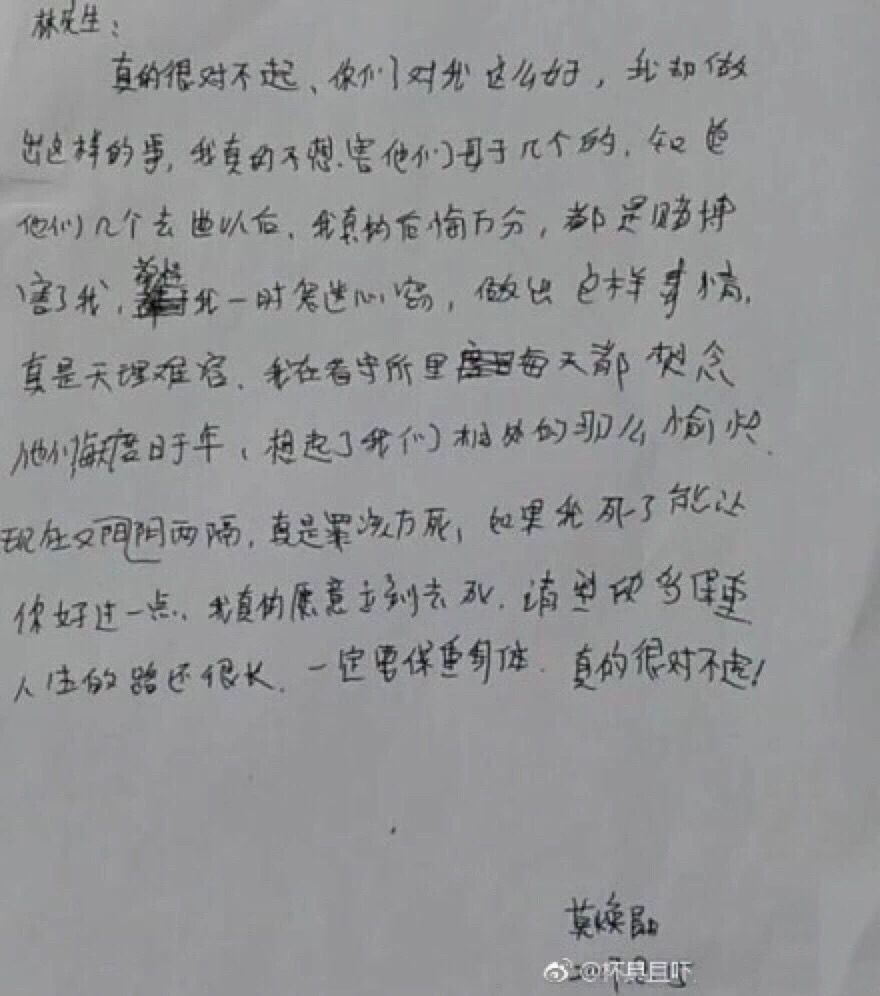 林先生：
真的很对不起、你们对我这么好，我却做
出这样的事，我真的不想害他们母子几个的，知道
他们几个去世以后，我真的后悔万分，都是赌博
害了我，我一时鬼迷心窍，做出这样事情，
真是天理难容．我在看守所里每天都想念
他们每度日于年，想起了我们相处的那么愉快．
现在又阴阳两隔，真是罪该万死，如果我死了能让
你好过一点，我真的愿意立刻去死．请
保重
人生的路还很长．一定要保重身体．真的很对不起！
莫焕晶
@杯具且吓